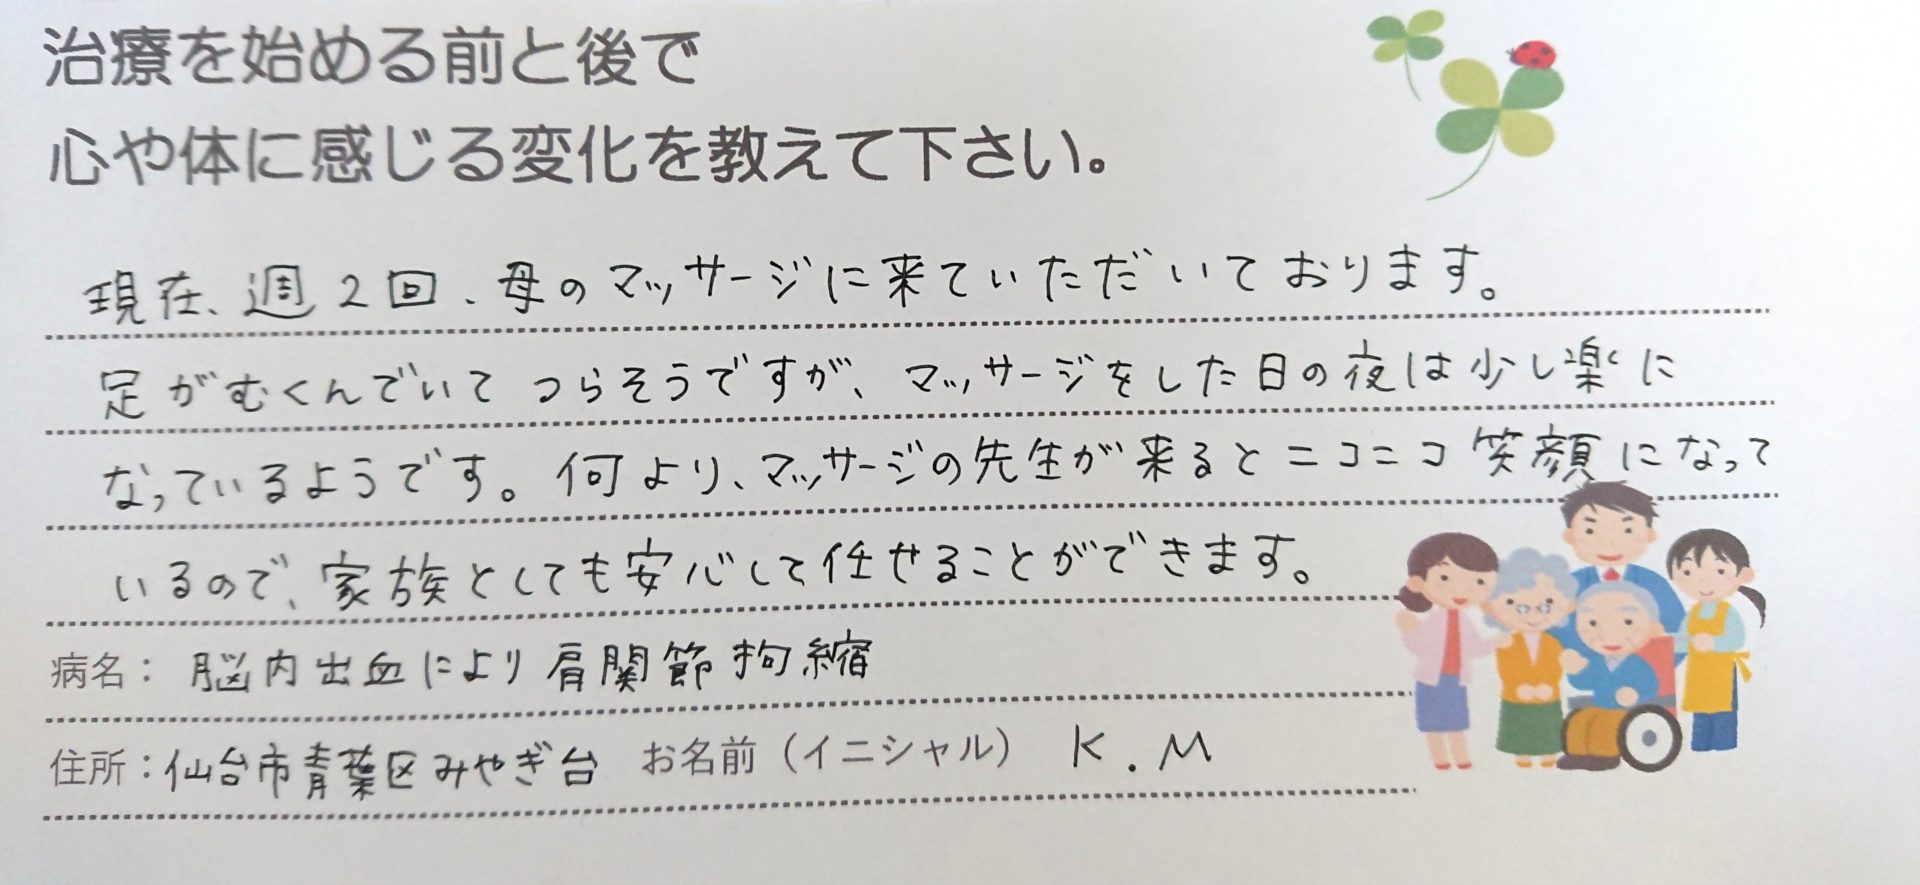 治療を始める前と後で
心や体に感じる変化を教えて下さい。
現在、週2回、母のマッサージに来ていただいております。
足がむくんでいてつらそうですが、マッサージをした日の夜は少し楽に
なっているようです。何より、マッサージの先生が来るとニコニコ笑顔になって
いるので、家族としても安心して任せることができます。
病名：脳内出血により肩関節拘縮
住所：仙台市青葉区みやぎ台 お名前（イニシャル） K.M